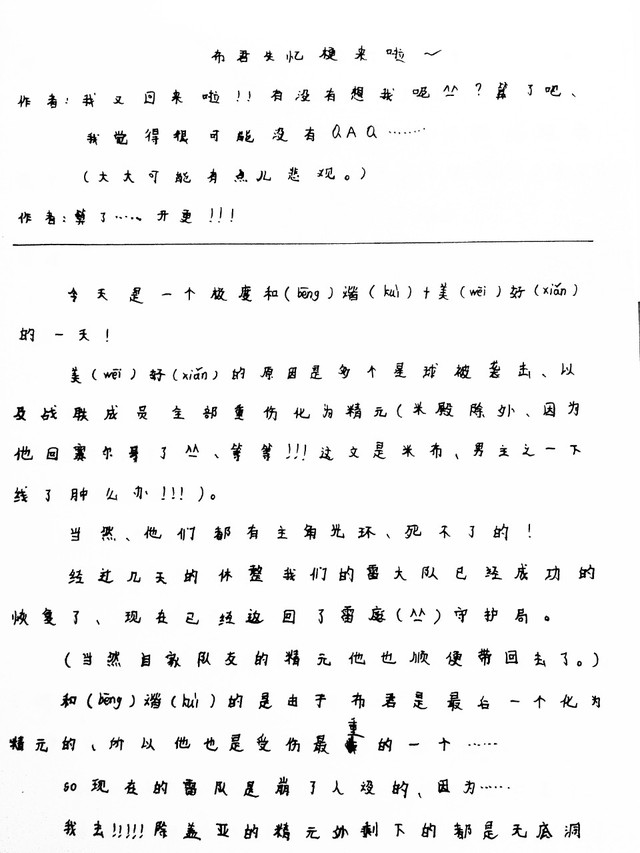 布君失忆梗来啦～
作者:我又回来啦!!有没有想我呃ㅆ?算了吧、
我觉得很可能没有QAQ……
(大大可能有点儿悲观。)
作者:算了……开更!!!
今天是一个极度和(bēng)谐(kuì)十美(wēi)好(xiǎn)
的一天!
美(wēi)好(xiǎn)的原因是多个星球被袭击、以
及战联成员全部重伤化为精元(米殿除外、因为
他回赛尔哥了ㅆ、等等!!!这文是米布、男主之一下
线了肿么办!!!)。
当然、他们都有主角光环、死不了的!
经过几天的休整我们的雷大队已经成功的
恢复了、现在已经返回了雷庭(ㅆ)守护局。
(当然自家队友的精元他也顺便带回去了。)
和(bēng)谐(kuì)的是由于布君是最后一个化为
精元的、所以他也是受伤最重的一个……
so现在的雷队是崩了人设的、因为……
我去!!!!!除盖亚的精元外剩下的都是无底洞